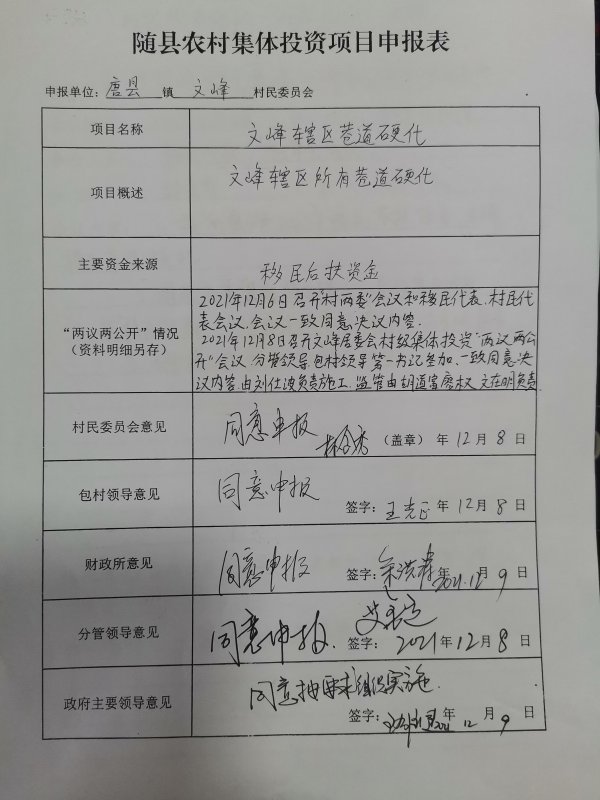 随县农村集体投资项目申报表
申报单位：唐县 镇 文峰 村民委员会
项目名称 文峰辖区巷道硬化
项目概述 文峰辖区所有巷道硬化
主要资金来源 移民后扶资金
“两议两公开”情况
（资料明细另存）
2021年12月6日召开“村两委”会议和移民代表、村民代
表会议，会议一致同意决议内容。
2021年12月8日召开文峰居委会村级集体投资“两议两公
开”会议，分管领导、包村领导、第一书记参加，一致同意决
议内容，由刘仕波负责施工，监管由胡道富、詹权、文在明负责
村民委员会意见 同意申报
（盖章） 年 12 月 8 日
包村领导意见 同意申报
签字： 年 12 月 8 日
财政所意见 同意申报
签字： 年 2021.12 月 9 日
分管领导意见 同意申报.
签字： 2021 年 12 月 8 日
政府主要领导意见 同意按要求组织实施.
签字： 年 12 月 9 日